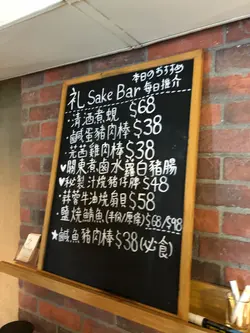 本日のおすすめ
礼 Sake Bar 每日推介
・清酒煮蜆 $68
・鹹蛋豬肉棒 $38
・芫茜雞肉棒 $38
♥關東煮鹵水露白豬腸
♥秘製汁燒豬仔脾 $48
・蒜蓉牛油燒扇貝 $58
・鹽燒鯖魚(半份/原條) $68/$98
★鹹魚豬肉棒 $38(必食)